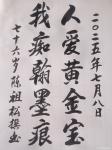 二〇二五年七月八日
人爱黄金宝
我痴翰墨痕
七十六岁陈祖松撰并书